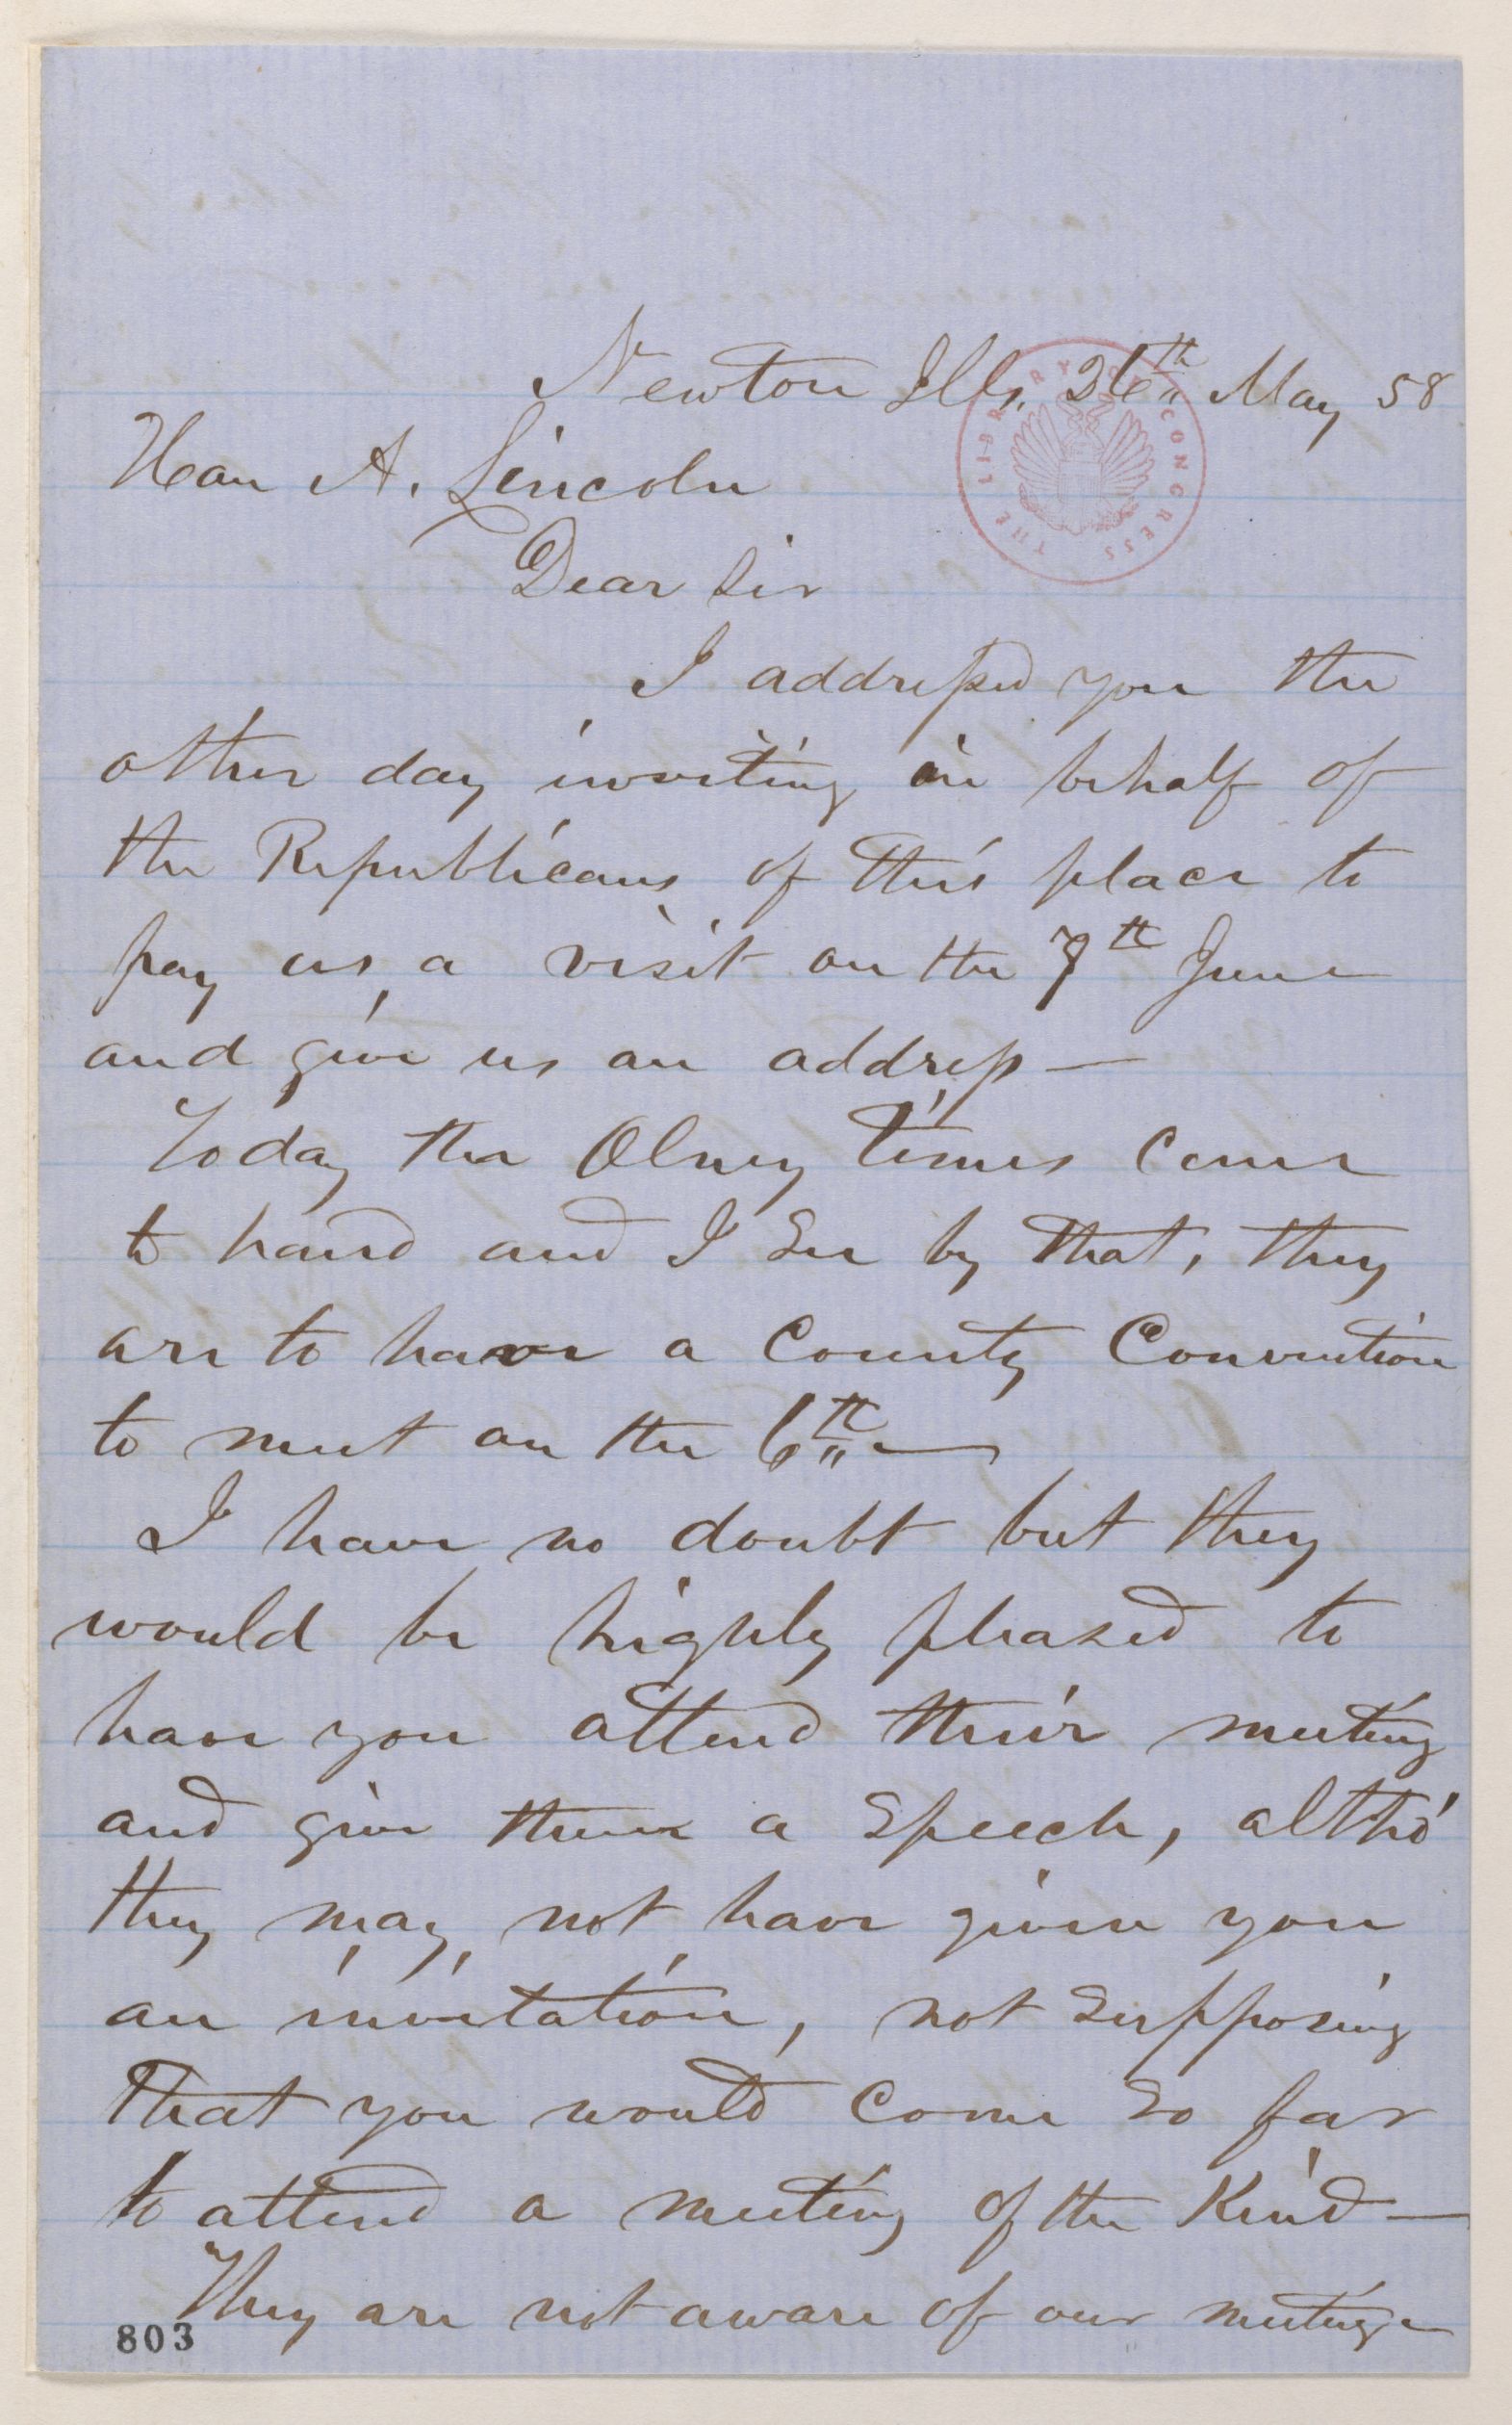 Newton Ills. 26th May 58
Hon A. Lincoln
Dear Sir
I addressed you the
other day inviting in behalf of
the Republicans of this place to
pay us a visit on the 7th June
and give us an address —
Today the Olney times come
to hand and I see by that, they
are to have a County Convention
to meet on the 6th —
I have no doubt but they
would be highly pleased to
have you attend their meeting
and give them a Speech, altho'
they may not have given you
an invitation, not supposing
that you would come so far
to attend a meeting of the Kind —
They are not aware of our meeting —
803
THE LIBRARY OF CONGRESS